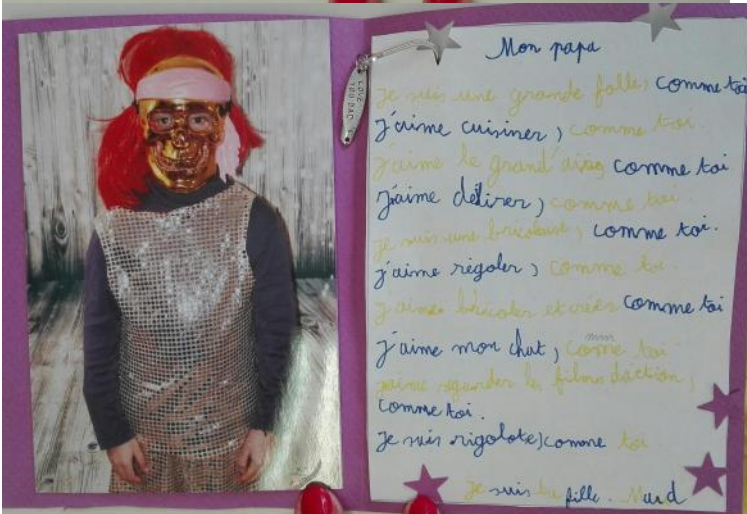 Mon papa
je suis une grande folle, comme toi
J'aime cuisiner, comme toi.
J'aime le grand air, comme toi
J'aime délirer, comme toi.
je suis une bricoleuse, comme toi.
j'aime rigoler, comme toi.
J'aime bricoler et créer comme toi
j'aime mon chat, comme toi
j'aime regarder les films d'action,
comme toi.
Je suis rigolote, comme toi
Je suis ta fille.
LOVE